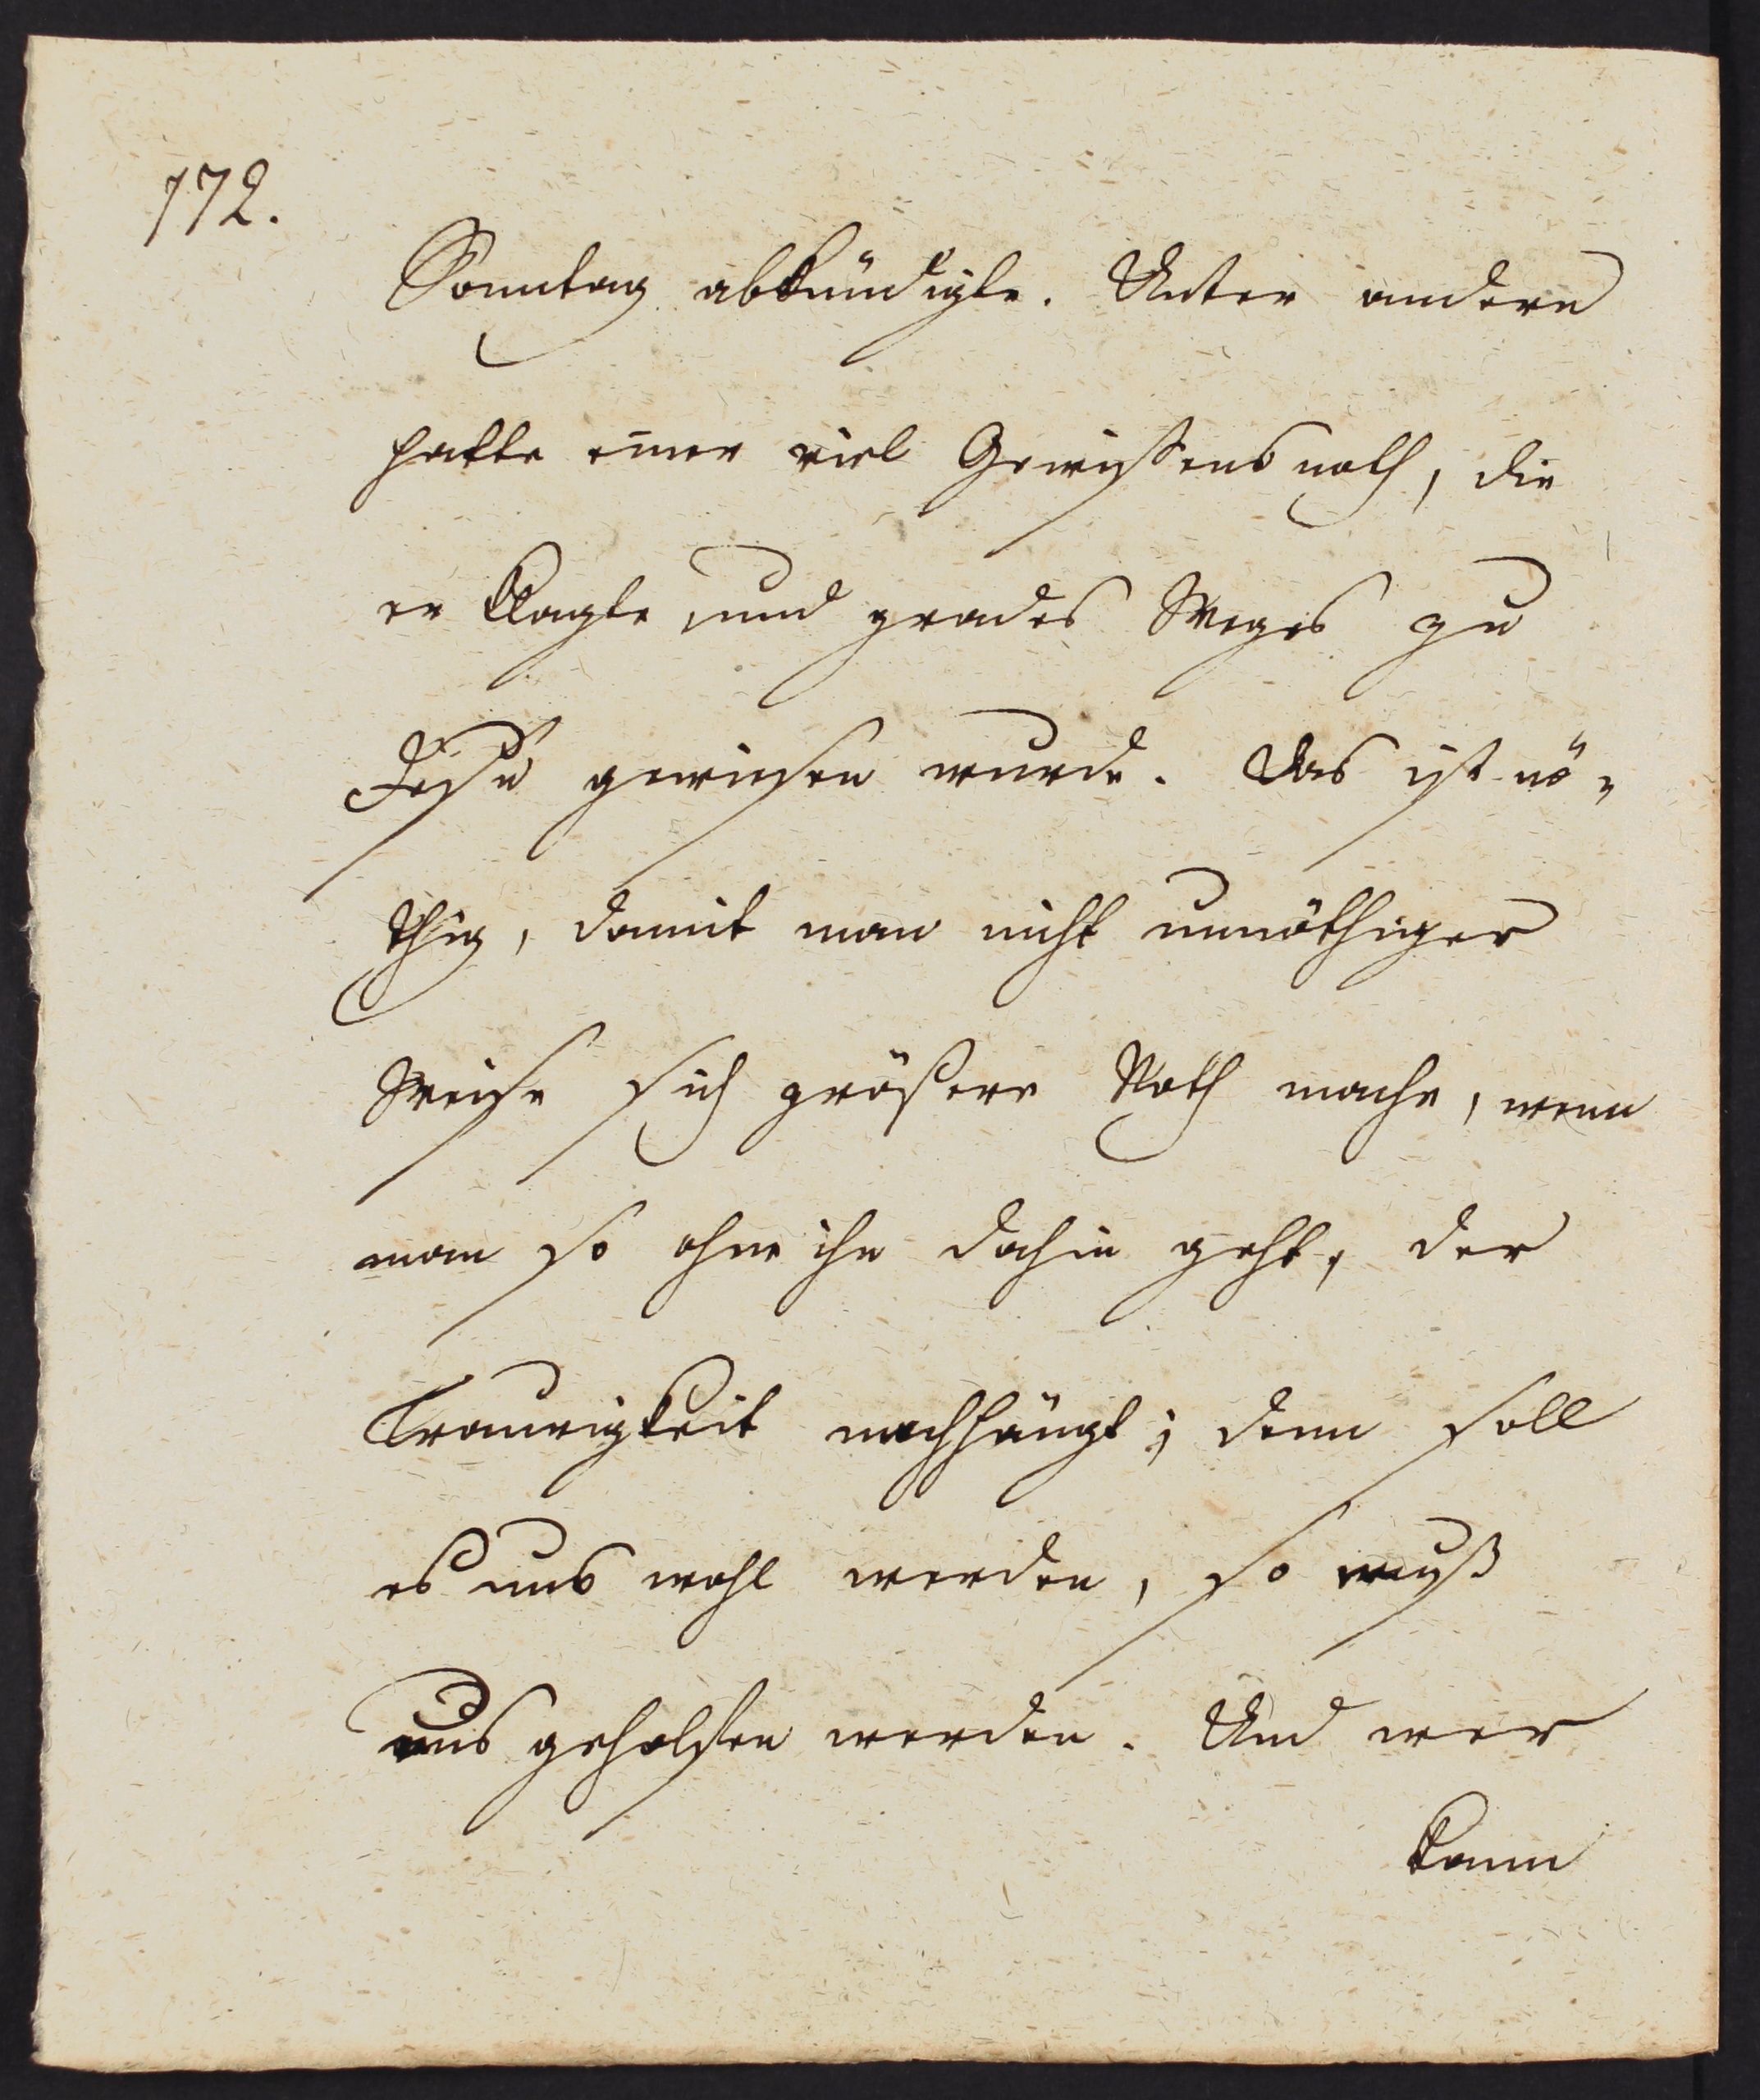 172.
Sonntag abkündigte. Unter andern
hatte einer viel Gewissensnoth, die
er klagte, und grades Weges zu
Jesu gewiesen wurde. Das ist nö-
thig, damit man nicht unnöthiger
Weise sich größere Noth mache, wenn
man so ohne ihn dahin geht, der
Traurigkeit nachhängt; denn soll
es uns wohl werden, so muß
uns geholfen werden. Und wer
kann